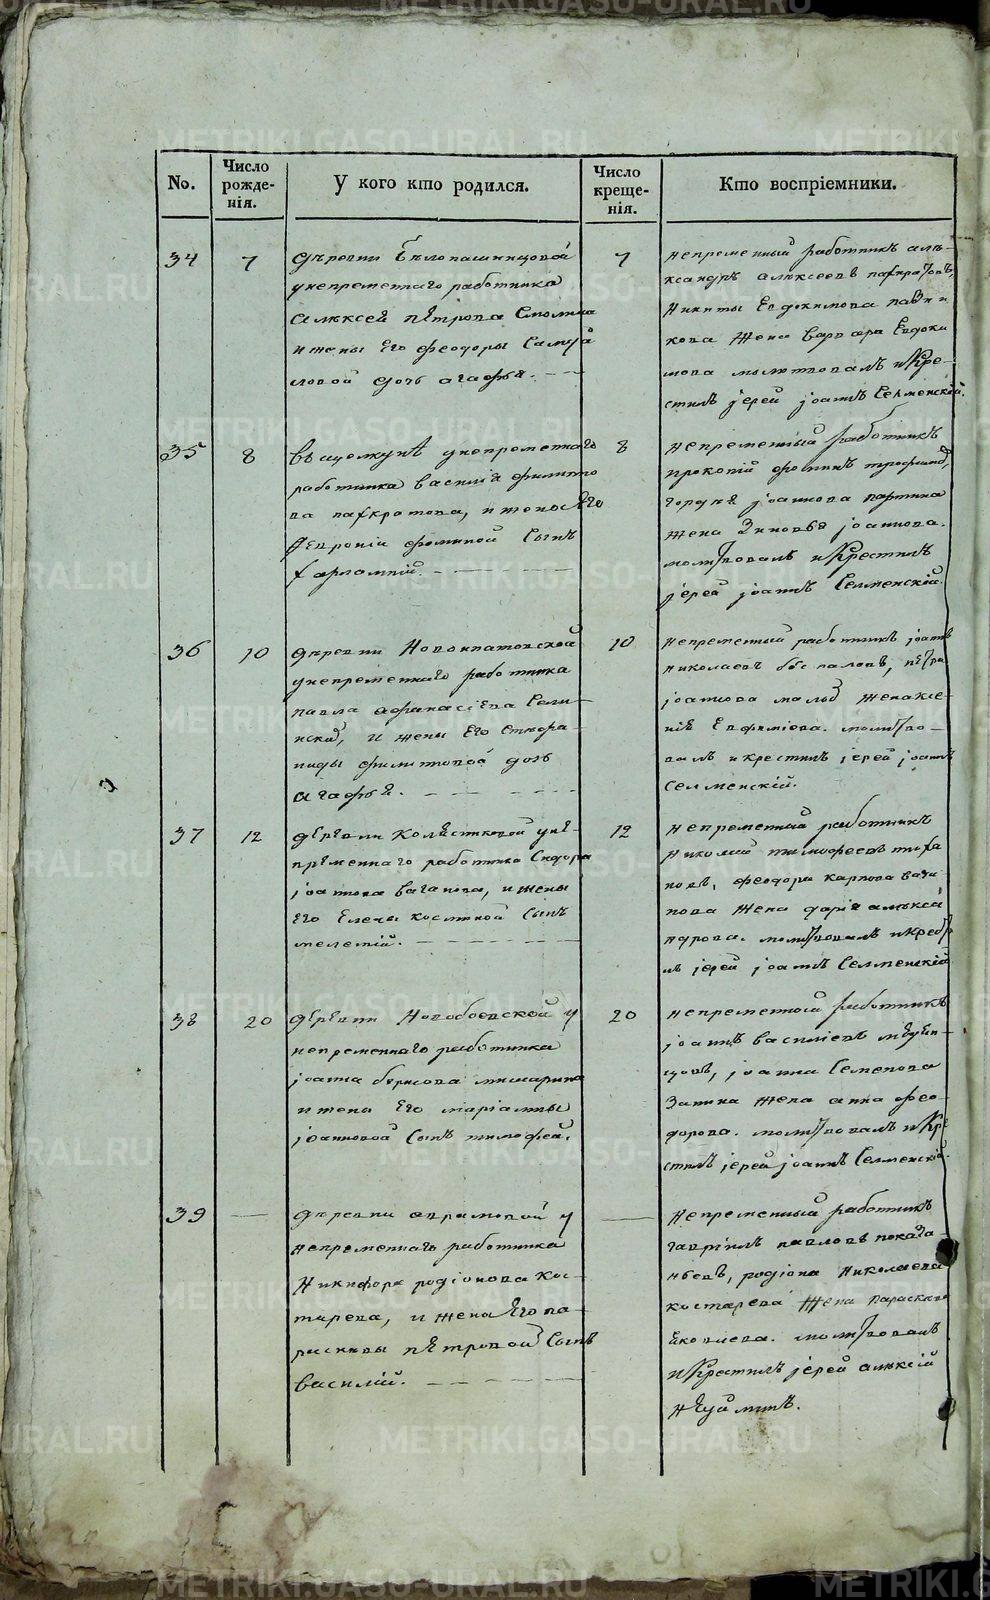 No.
Число рожде-
нія.
У кого кто родился.
Число креще-
нія.
Кто воспріемники.
34
7
деревни Белопашинцовой
у непременнаго работника
Алексея Петрова Смолина
и жены его Феодоры Самуи
ловой дочь Агафья.
7
непременный работник Але-
ксандръ Алексеевъ Панкратовъ,
Никиты Евдокимова
кова жена Варвара Евдоки
мова молитвовалъ и кре-
стилъ іерей Іоаннъ Селменскій.
35
8
в Щелкунѣ у непременнаго
работника Василія Филипо
ва Панкратова, и жены его
Февроніи Фоминой сынъ
Харлампій.
8
непременный работникъ
Прокопій Фоминъ
Іоаннова
жена Зиновья Іоаннова.
молитвовалъ и крестилъ
іерей Іоаннъ Селменскій.
36
10
деревни Новоипатовской
у непременнаго работника
Павла Афанасіева
и жены его Стефа-
ниды Филиповой дочь
Агафья.
10
непременный работникъ Іоаннъ
Николаевъ Беспаловъ, Петра
Іоаннова жена Ксе-
нія Евфиміова. молитво-
валъ и крестилъ іерей Іоаннъ
Селменскій.
37
12
деревни Колясниковой у не-
пременнаго работника Сидора
Іоаннова Ваганова, и жены
его Елены Косминой сынъ
Мелетій.
12
непременный работникъ
Николай Тимофеевъ
Феодора Карпова Вага-
нова жена Дарія Алексан
дрова. молитвовалъ и крести
лъ іерей Іоаннъ Селменскій
38
20
деревни Новобоевской у
непременнаго работника
Іоанна Борисова Мишарина
и жены его Маріамны
Іоанновой сынъ Тимофей.
20
непременной работникъ
Іоаннъ Василіевъ
Іоанна Семенова
Зыкина жена Анна Фео-
дорова. молитвовалъ и кре
стилъ іерей Іоаннъ Селменскій.
39
деревни Аврамовой у
непременнаго работника
Никифора Родіонова Кос-
тырева, и жены его Па-
раскивы Петровой сынъ
Василій.
непременный работникъ
Гавріилъ Павловъ
Родіона Николаева
Костарева жена Параскива
Яковлева. молитвовалъ
и крестилъ іерей Алексій
METRIKI.GASO-URAL.RU